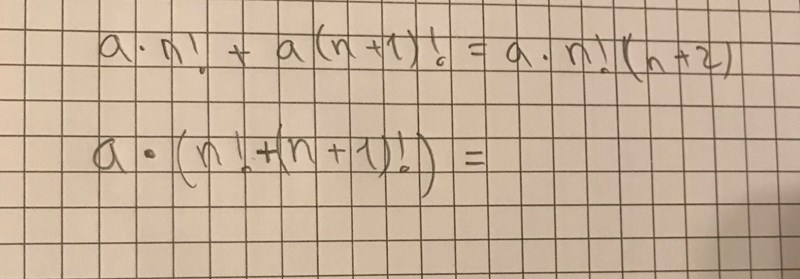 a · n! + a(n+1)! = a · n!(n+2)
a · (n!+(n+1)!) =